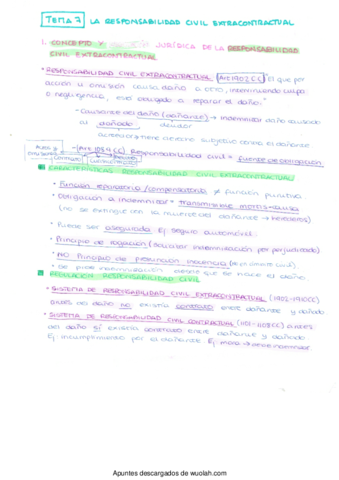 TEMA 7 LA RESPONSABILIDAD CIVIL EXTRACONTRACTUAL
1. CONCEPTO Y JURÍDICA DE LA RESPONSABILIDAD
CIVIL EXTRACONTRACTUAL
• RESPONSABILIDAD CIVIL EXTRACONTRACTUAL (Art 1902 CC) "El que por
acción u omisión causa daño a otro, interviniendo culpa
o negligencia, está obligado a reparar el daño."
- Causante del daño (dañante) → indemnizar daño causado
al dañado deudor
acreedor → tiene derecho subjetivo contra el dañante
- (Art 1089 CC) Responsabilidad civil = fuente de obligación
CARACTERÍSTICAS RESPONSABILIDAD CIVIL EXTRACONTRACTUAL
• Función reparatoria/compensatoria ≠ función punitiva
• Obligación a indemnizar = transmisible MORTIS-CAUSA
(no se extingue con la muerte del dañante → herederos)
• Puede ser asegurada. Ej: Seguro automóvil.
• Principio de rogación (solicitar indemnización por perjudicado)
• NO Principio de presunción inocencia
• Se pide indemnización desde que se hace el daño.
REGULACIÓN RESPONSABILIDAD CIVIL
• SISTEMA DE RESPONSABILIDAD CIVIL EXTRACONTRACTUAL (1902-1910CC)
antes del daño no existía contrato entre dañante y dañado
• SISTEMA DE RESPONSABILIDAD CIVIL CONTRACTUAL (1101-1108CC) antes
del daño sí existía contrato entre dañante y dañado.
Ej: incumplimiento por el dañante Ej: mora →
Apuntes descargados de wuolah.com